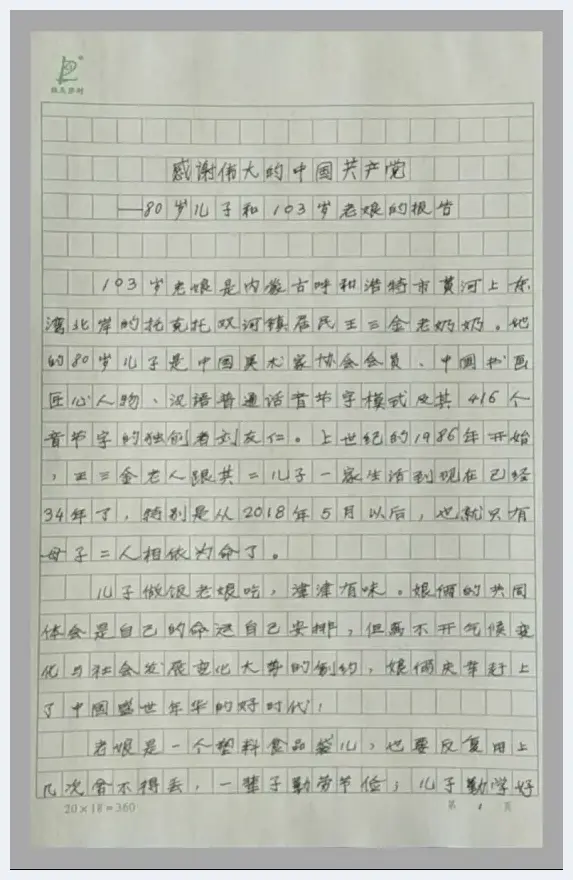 感谢伟大的中国共产党
——80岁儿子和103岁老娘的报告
103岁老娘是内蒙古呼和浩特市黄河上东
湾北岸的托克托双河镇居民王三金老奶奶。她
的80岁儿子是中国美术家协会会员、中国书画
匠心人物、汉语普通话音节字模式及其416个
音节字的独创者刘友仁。上世纪的1986年开始
，王三金老人跟其二儿子一家生活到现在已经
34年了，特别是从2018年5月以后，也就只有
母子二人相依为命了。
儿子做饭老娘吃，津津有味。娘俩的共同
体会是自己的命运自己安排，但离不开气候变
化与社会发展变化大势的制约，娘俩庆幸赶上
了中国盛世年华的好时代！
老娘是一个塑料食品袋儿，也要反复用上
几次舍不得丢，一辈子勤劳节俭；儿子勤学好
20×18=360
第 1 页